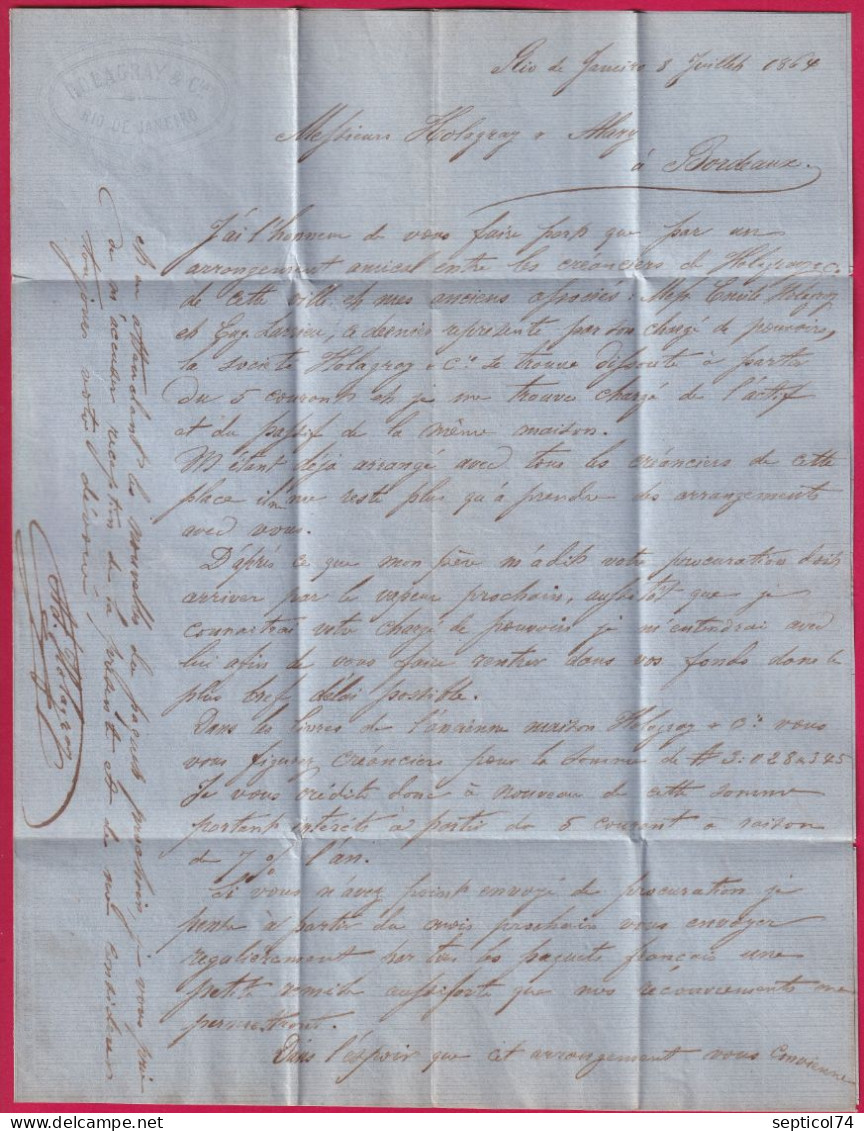 HOLAGRAY & Cie
RIO DE JANEIRO
Rio de Janeiro 8 Juillet 1864
Messieurs Holagray & Alary
à Bordeaux.
J'ai l'honneur de vous faire part que par un
arrangement amical entre les créanciers de Holagray & C.
de cette ville et mes anciens associés: Mess. Emile Holagray
et Eug. ce dernier représenté par son chargé de pouvoirs,
la société Holagray & Cie se trouve dissoute à partir
du 5 courant et je me trouve chargé de l'actif
et du passif de la même maison.
M'étant déjà arrangé avec tous les créanciers de cette
place il ne me reste plus qu'à prendre des arrangements
avec vous.
D'après ce que mon père m'a dit votre procuration doit
arriver par le vapeur prochain, aussitôt que je
connaitrai votre chargé de pouvoir je m'entendrai avec
lui afin de vous faire rentrer dans vos fonds dans le
plus bref délai possible.
Dans les livres de l'ancienne maison Holagray & Cie vous
vous figurez créanciers pour la somme de 3:028 345
Je vous crédite donc à nouveau de cette somme
portant intérêt à partir du 5 courant à raison
de 7% l'an.
Si vous n'avez point envoyé de procuration je
pense à partir du mois prochain vous envoyer
regulièrement par tous les paquets français une
petite remise aussi forte que nos récouvrements me
permettront.
Dans l'espoir que cet arrangement vous convienne
et en attendant les nouvelles du paquet prochain, je vous prie
de m'accuser réception de la présente et de me considérer
toujours votre dévoué,
Holagray
septicol74